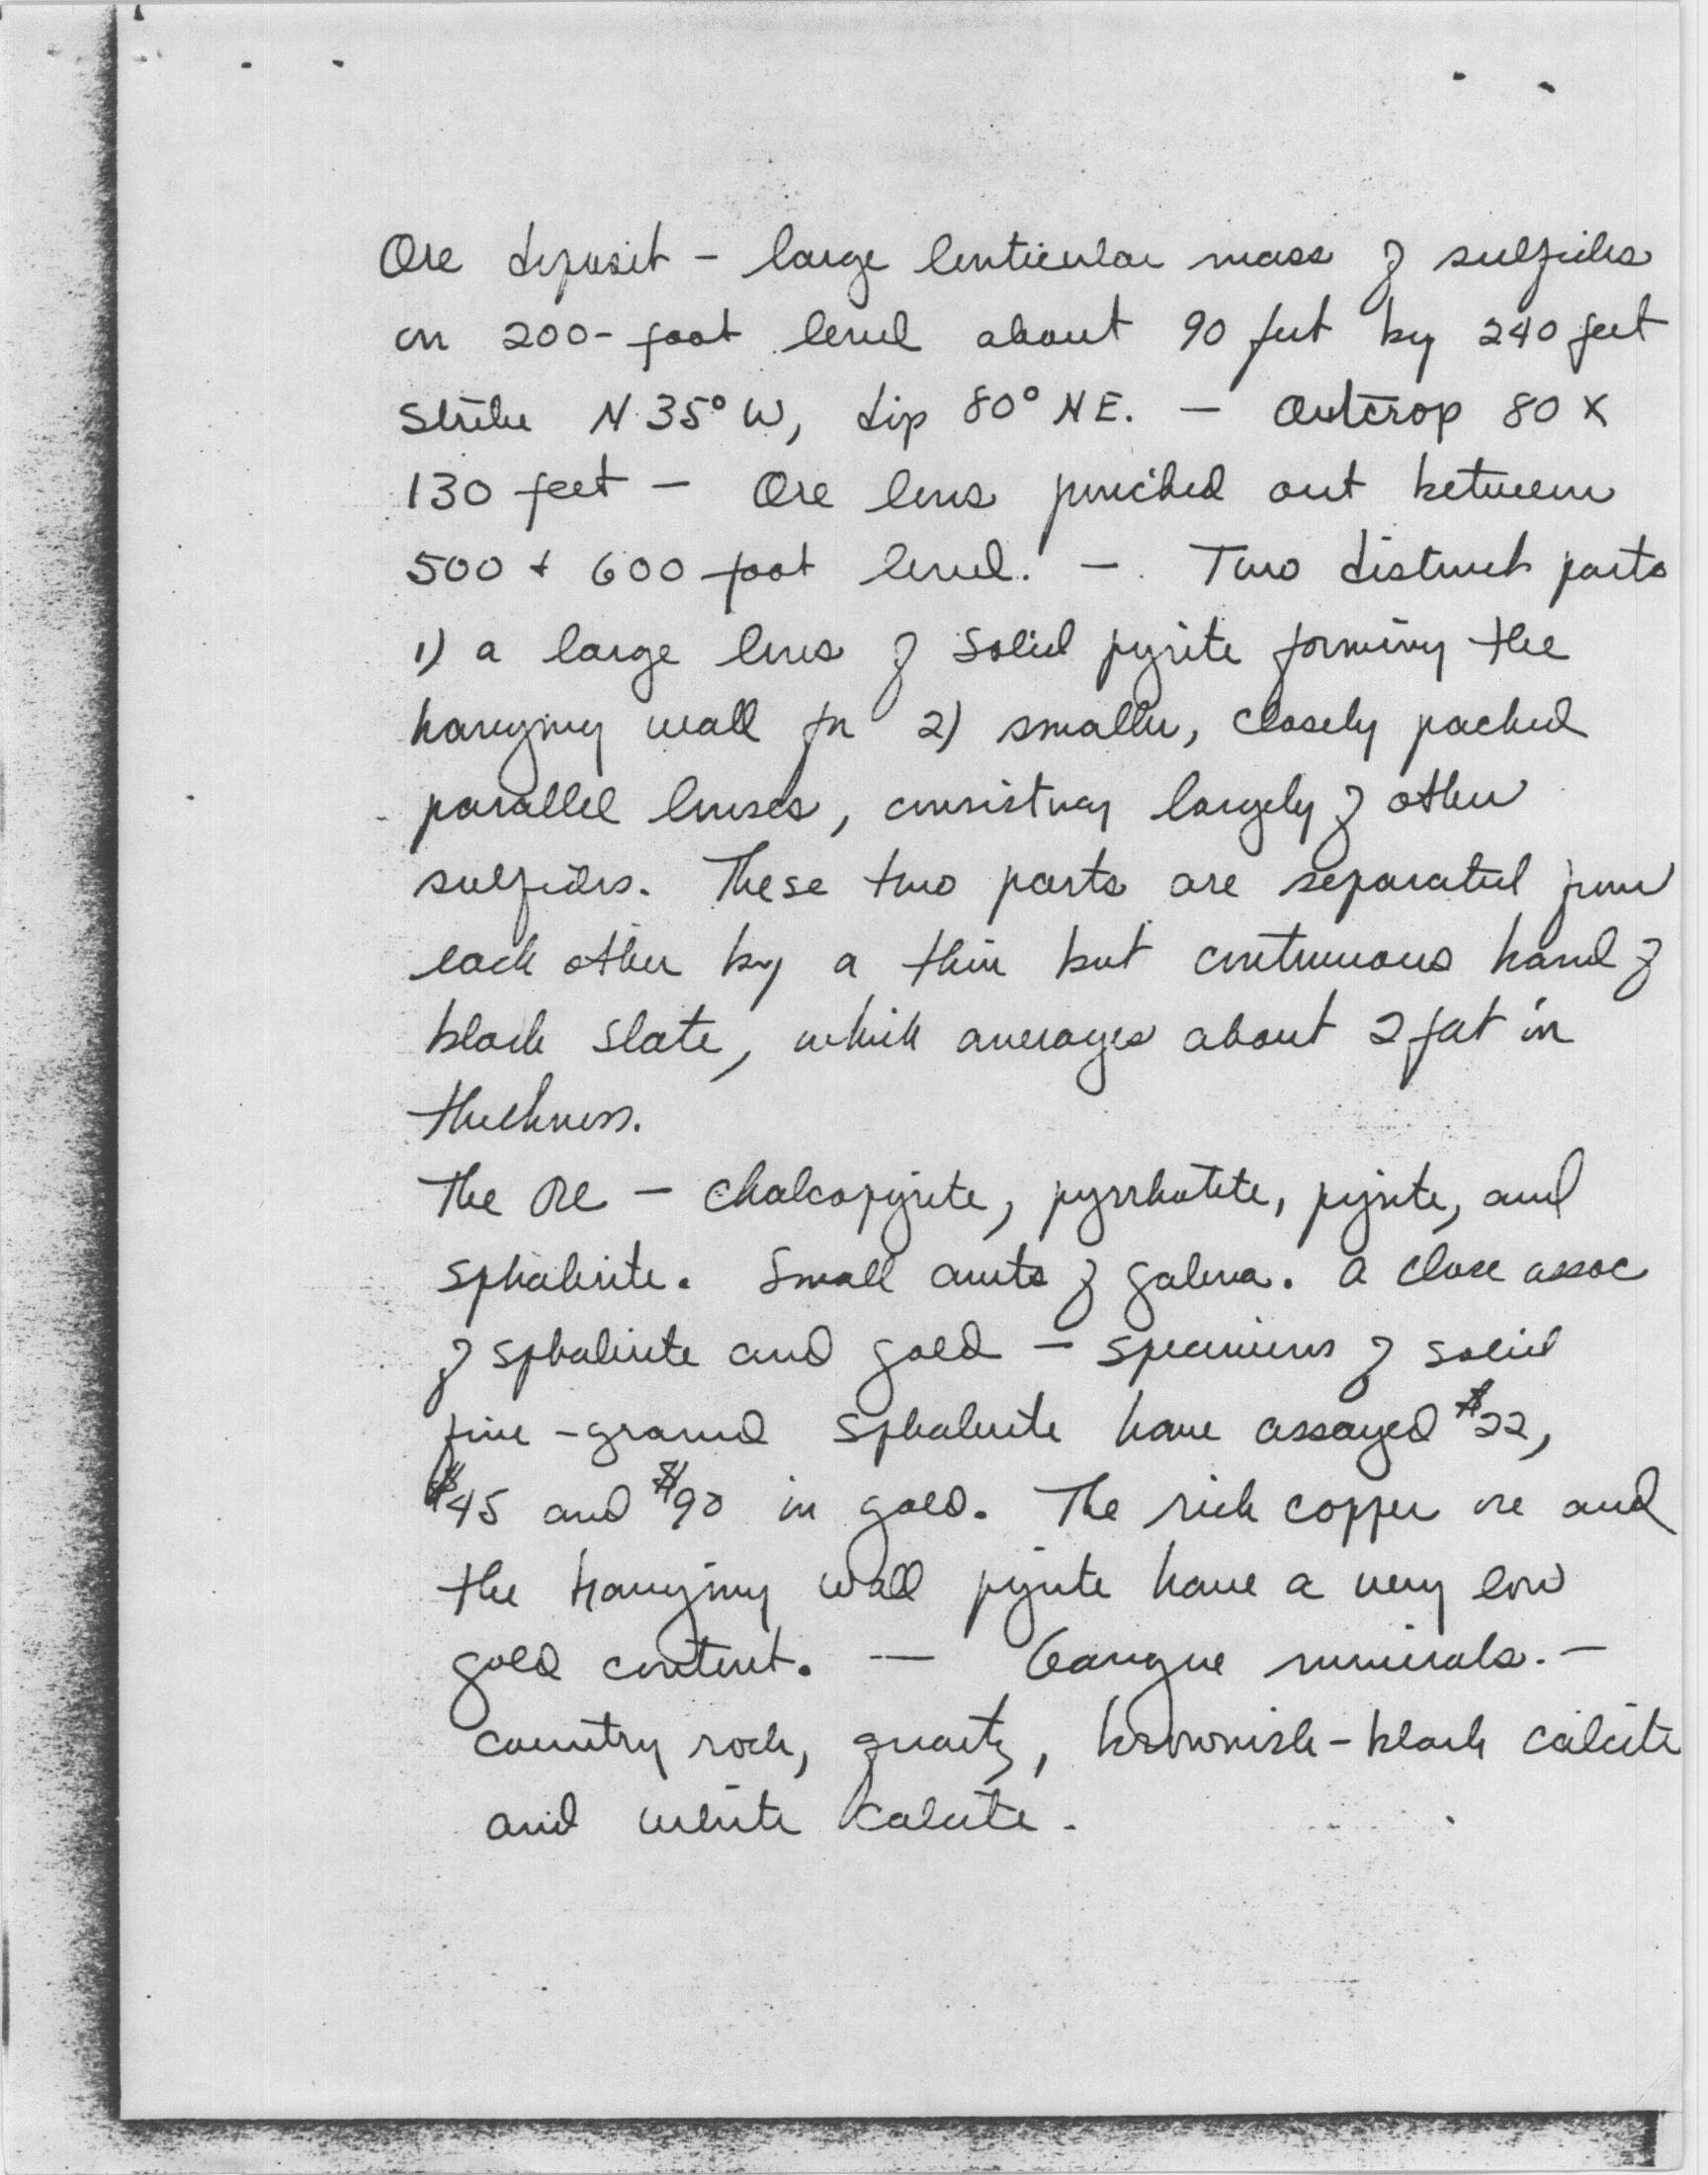 Ore deposit - large lenticular mass of sulfides
on 200-foot level about 90 feet by 240 feet
Strike N 35° W, dip 80° NE. — Outcrop 80 X
130 feet — Ore lens pinched out between
500 + 600 foot level. — Two distinct parts
1) a large lens of solid pyrite forming the
hanging wall for 2) smaller, closely packed
parallel lenses, consisting largely of other
sulfides. These two parts are separated from
each other by a thin but continuous band of
black slate, which averages about 2 feet in
thickness.
The Ore — chalcopyrite, pyrrhotite, pyrite, and
sphalerite. Small amts of galena. A close assoc
of sphalerite and gold — specimens of solid
fine-grained sphalerite have assayed $22,
$45 and $90 in gold. The rich copper ore and
the hanging wall pyrite have a very low
gold content. — Gangue minerals. —
country rock, quartz, brownish-black calcite
and white calcite.